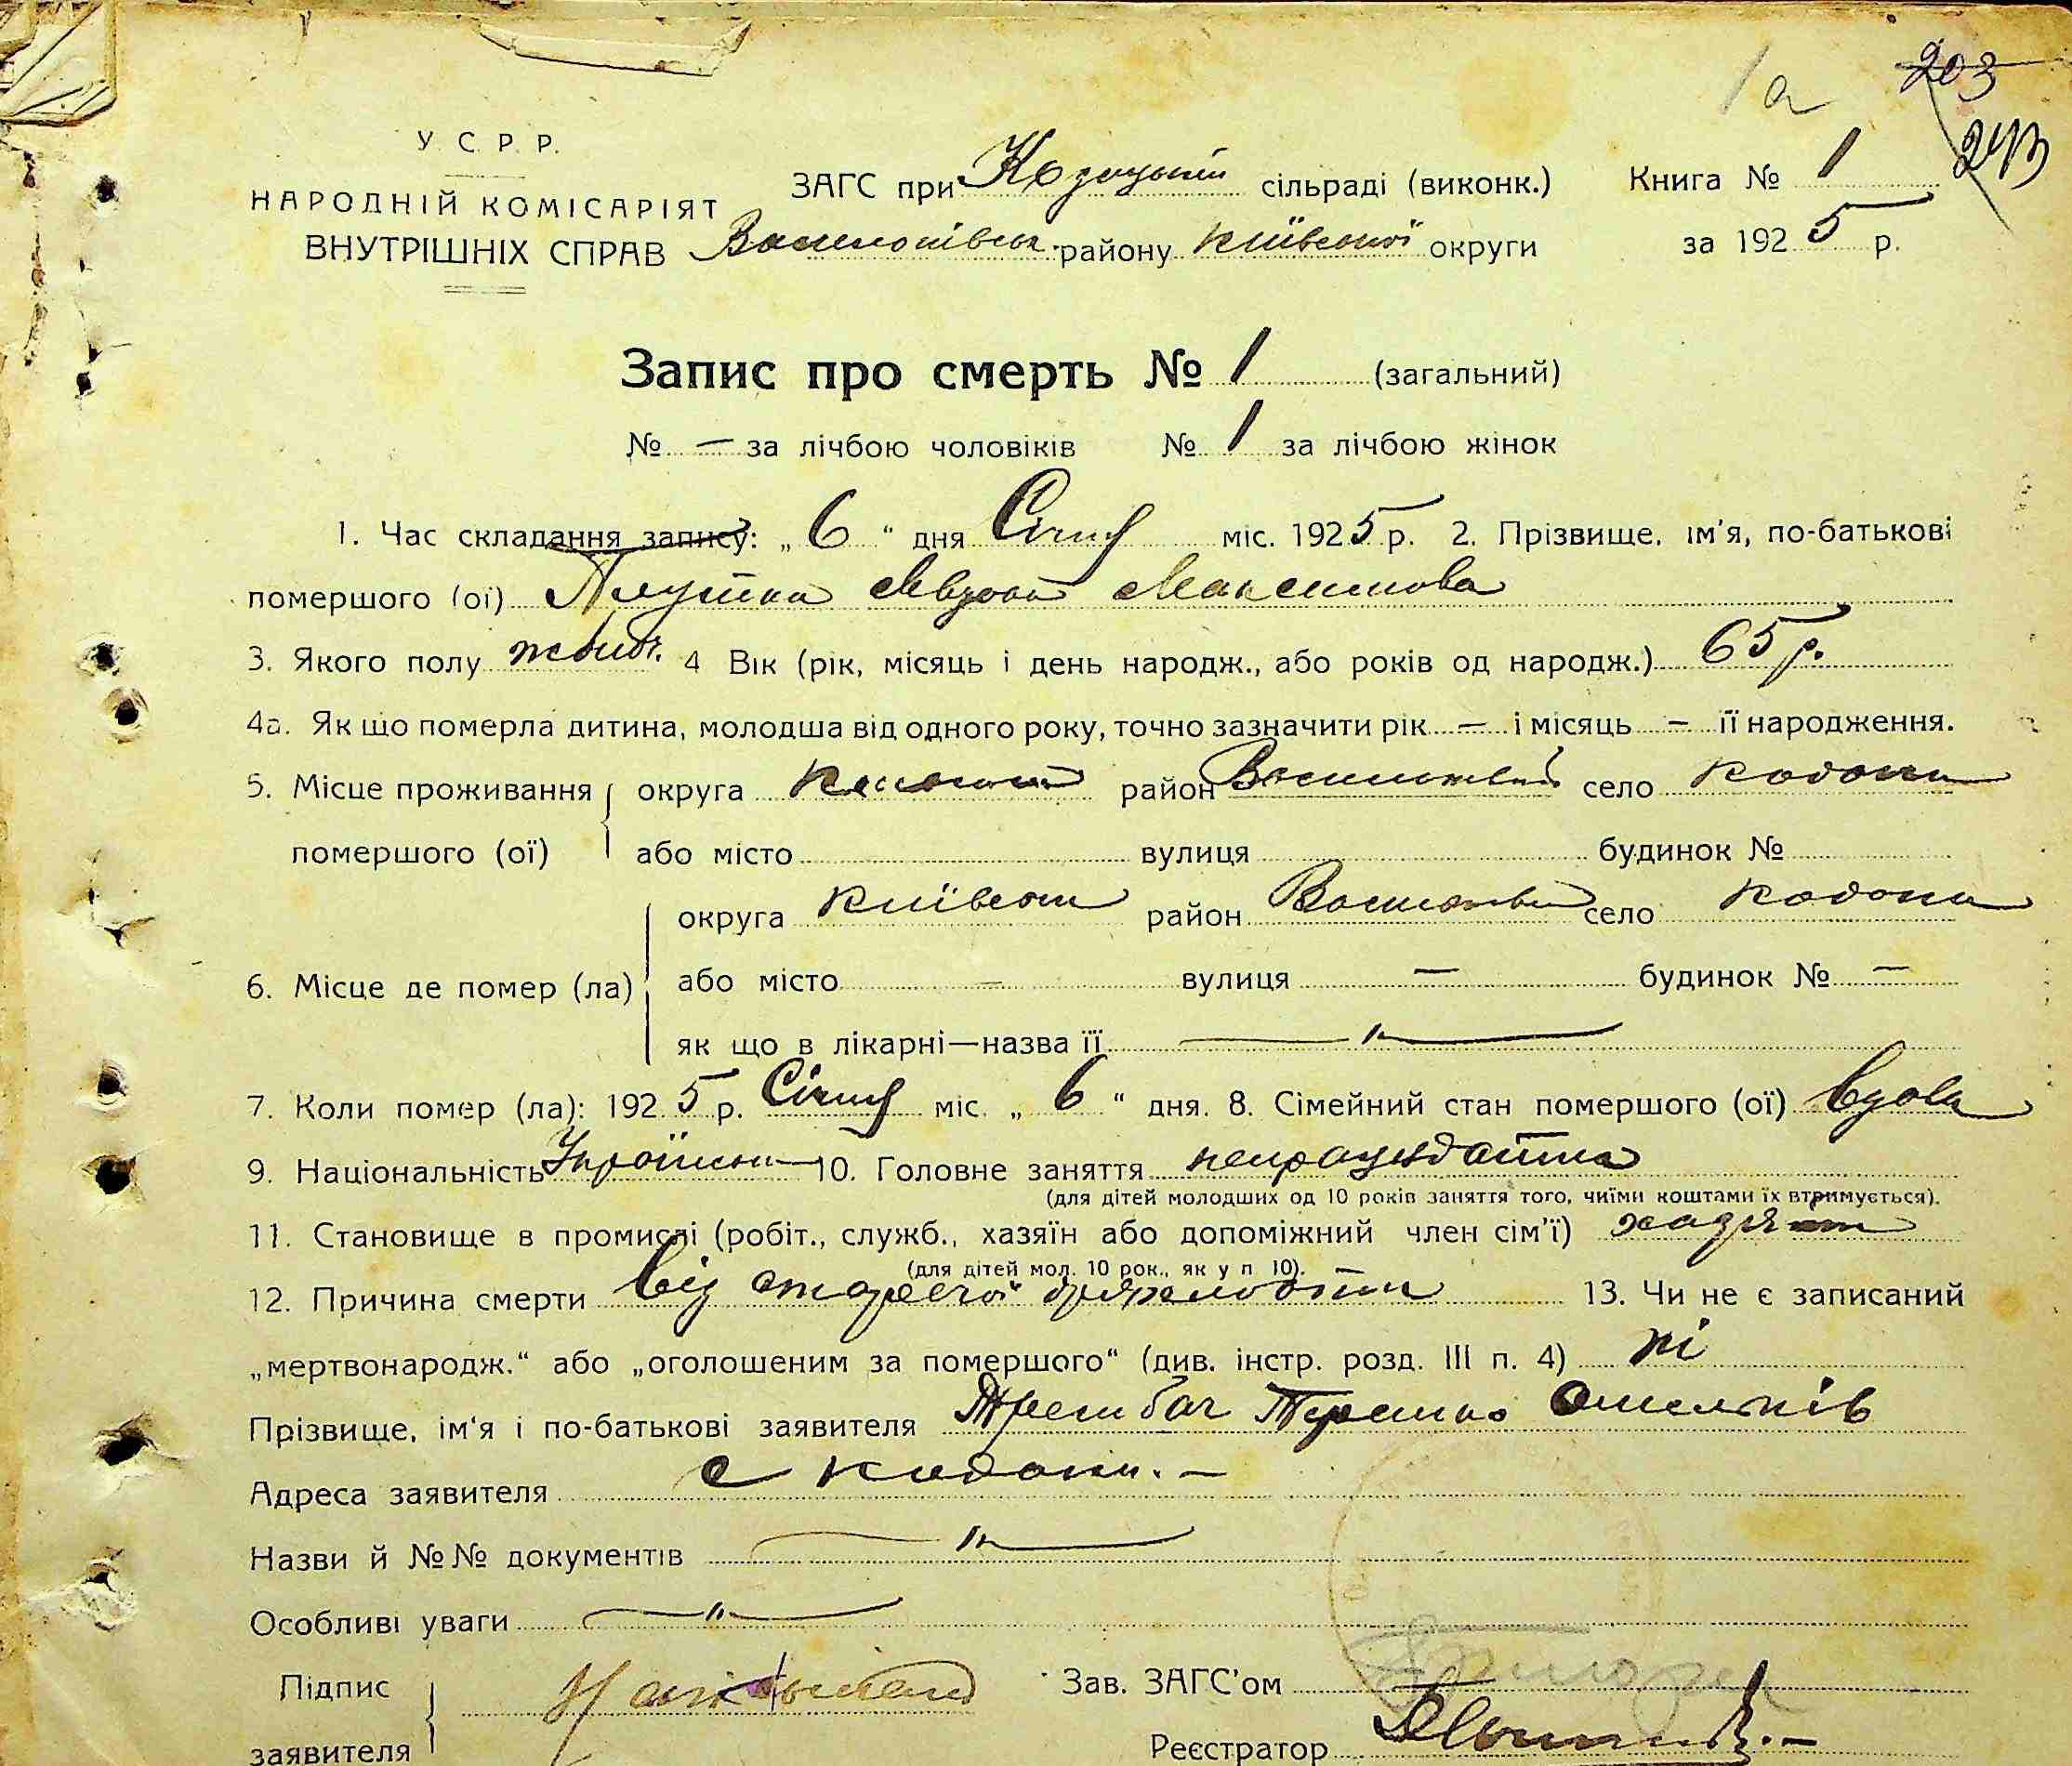 1а 203
243
У. С. Р. Р.
НАРОДНІЙ КОМІСАРІЯТ
ВНУТРІШНІХ СПРАВ
ЗАГС при сільраді (виконк.) Книга № 1
району Київської округи за 1925 р.
Запис про смерть № 1 (загальний)
№ — за лічбою чоловіків № 1 за лічбою жінок
1. Час складання запису: „6“ дня Січня міс. 1925 р. 2. Прізвище, ім'я, по-батькові
помершого (ої) Максимова
3. Якого полу 4 Вік (рік, місяць і день народж., або років од народж.) 65 р.
4а. Як що померла дитина, молодша від одного року, точно зазначити рік — і місяць — її народження.
5. Місце проживання округа район село Кодаки
помершого (ої) або місто вулиця будинок №
округа Київська район село Кодаки
6. Місце де помер (ла) або місто — вулиця — будинок № —
як що в лікарні—назва її — „ —
7. Коли помер (ла): 1925 р. Січня міс. „6“ дня. 8. Сімейний стан помершого (ої) вдова
9. Національність 10. Головне заняття непрацездатна
(для дітей молодших од 10 років заняття того, чиїми коштами їх втримується).
11. Становище в промислі (робіт., служб., хазяїн або допоміжний член сім'ї)
(для дітей мол. 10 рок., як у п 10).
12. Причина смерти від старечої дряхлости 13. Чи не є записаний
„мертвонародж.“ або „оголошеним за помершого“ (див. інстр. розд. III п. 4) ні
Прізвище, ім'я і по-батькові заявителя Трембач Омельків
Адреса заявителя с Кодаки. —
Назви й №№ документів — „ —
Особливі уваги — „ —
Підпис
заявителя
Зав. ЗАГС'ом
Реєстратор